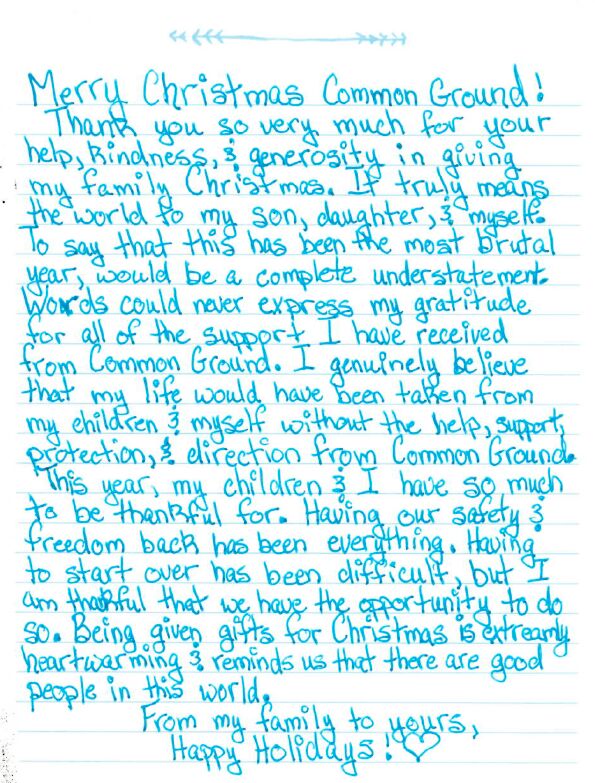 Merry Christmas Common Ground!
Thank you so very much for your
help, kindness, & generosity in giving
my family Christmas. It truly means
the world to my son, daughter, & myself.
To say that this has been the most brutal
year, would be a complete understatement.
Words could never express my gratitude
for all of the support I have received
from Common Ground. I genuinely believe
that my life would have been taken from
my children & myself without the help, support,
protection, & direction from Common Ground.
This year, my children & I have so much
to be thankful for. Having our safety &
freedom back has been everything. Having
to start over has been difficult, but I
am thankful that we have the opportunity to do
so. Being given gifts for Christmas is extreamly
heartwarming & reminds us that there are good
people in this world.
From my family to yours,
Happy Holidays! ♡